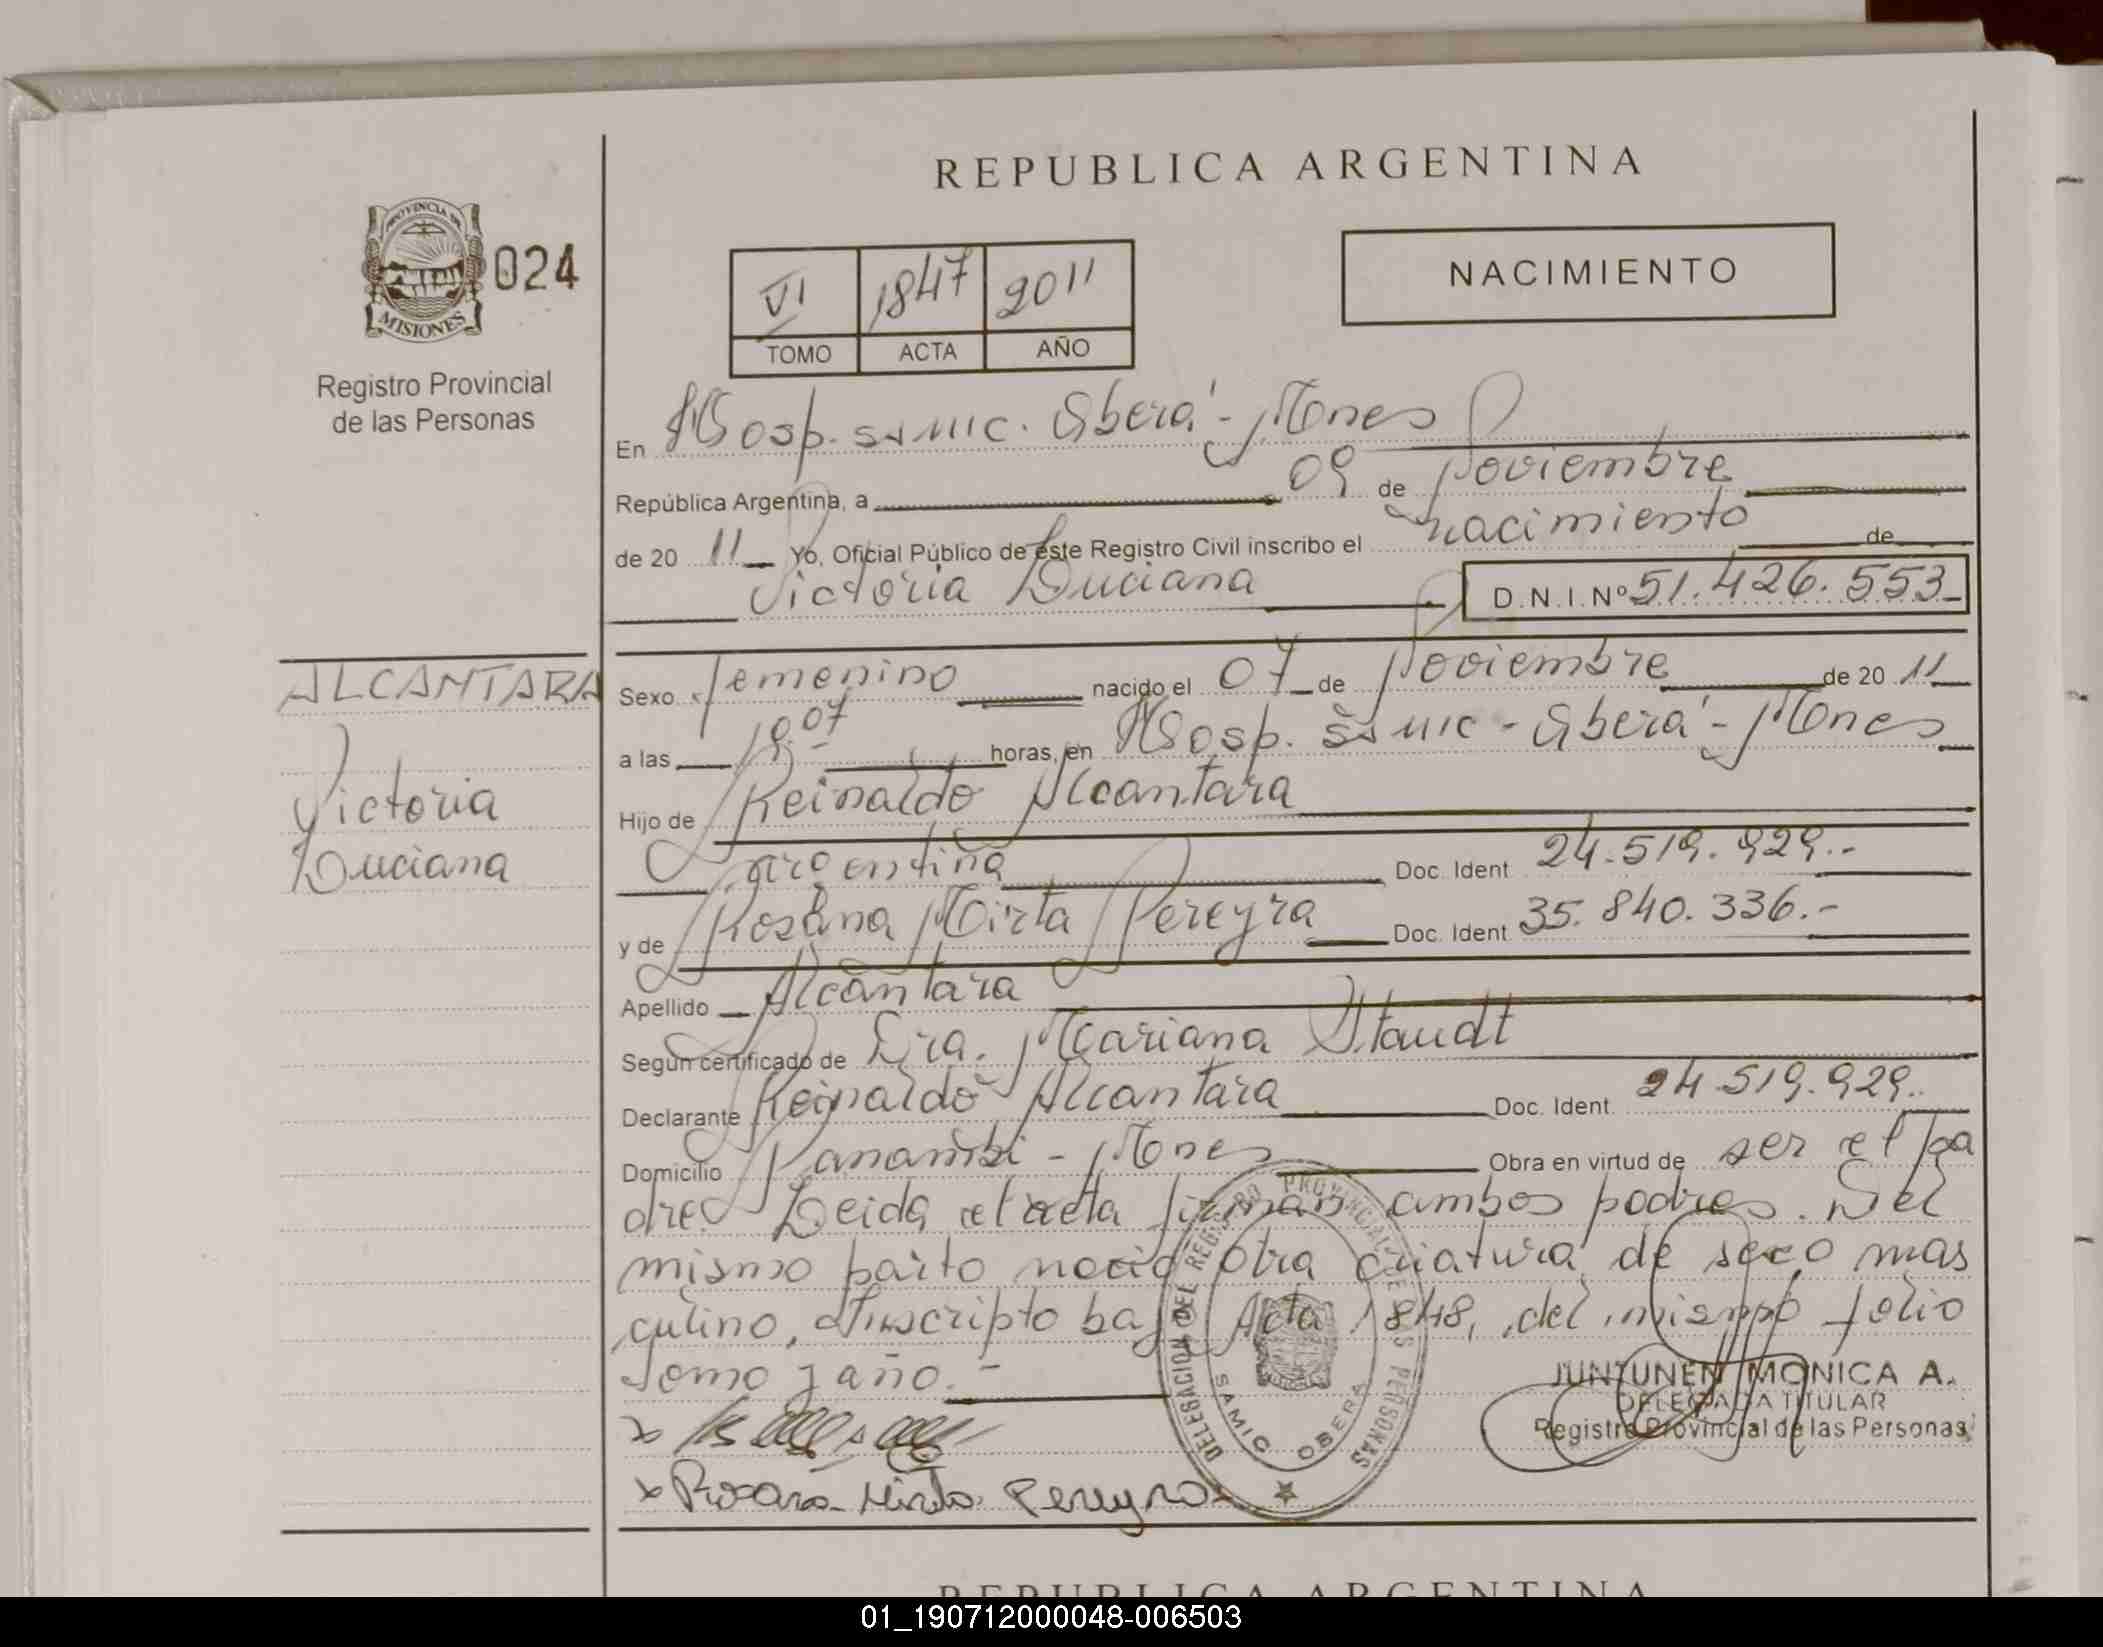 REPUBLICA ARGENTINA
PROVINCIA DE
MISIONES
024
Registro Provincial
de las Personas
NACIMIENTO
VI 1847 2011
TOMO ACTA AÑO
En Hosp. SAMIC. Oberá - Mnes
República Argentina, a 09 de Noviembre
de 20 11 Yo, Oficial Público de este Registro Civil inscribo el nacimiento de
Victoria Luciana D.N.I.Nº 51.426.553
ALCANTARA
Victoria
Luciana
Sexo femenino nacido el 07 de Noviembre de 20 11
a las 19:07 horas, en Hosp. SAMIC - Oberá - Mnes
Hijo de Reinaldo Alcantara
argentina Doc. Ident 24.519.929.-
y de Rosana Mirta Pereyra Doc. Ident 35.840.336.-
Apellido Alcantara
Según certificado de Dra. Mariana Staudt
Declarante Reinaldo Alcantara Doc. Ident. 24.519.929.
Domicilio Panambi - Mnes Obra en virtud de ser el pa
dre. Leida el acta firman ambos padres. Del
mismo parto nació otra criatura de sexo mas
culino, Inscripto bajo Acta 1848, del mismo folio
Tomo y año.-
JUNTUNEN MONICA A.
DELEGADA TITULAR
Registro Provincial de las Personas
DELEGACION DEL REGISTRO PROVINCIAL DE LAS PERSONAS
SAMIC OBERA
x Rosana Mirta Pereyra
REPUBLICA ARGENTINA
01_190712000048-006503